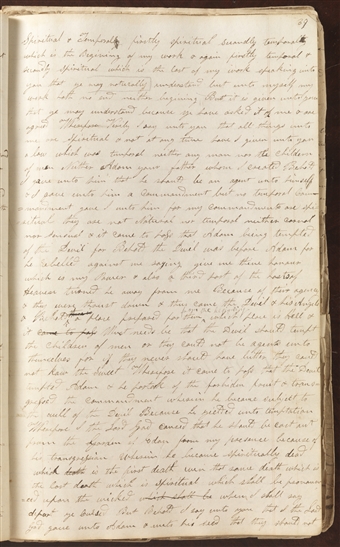 39
Spiritual & Temporal firstly spiritual secondly temporal
which is the begining of my work & again firstly temporal &
secondly spiritual which is the last of my work speaking unto
you that ye may naturally understand but unto myself my
work hath no end neither begining But it is given unto you
that ye may understand because ye have asked it of me & are
agreed Wherefore Verily I say unto you that all things unto
me are Spiritual & not at any time have I given unto you
a law which was temporal neither any man nor the children
of men Neither Adam your father whom I created Behold
I gave unto him that he should be an agent unto himself
& I gave unto him a Commandment but no temporal com-
mandment gave I unto him for my Commandments are spi-
ritual they are not Natural nor temporal neither carnal
nor sensual & it came to pass that Adam being tempted
of the Devil for Behold the Devil was before Adam for
he rebelled against me saying give me thine honour
which is my Power & also a third part of the hosts of
Heaven turned he away from me Because of their agency
& they were thrust down & thus came the Devil & his Angels
& Behold a place prepared for them which place is hell &
it must needs be that the Devil should tempt
the Children of men or they could not be agents unto
themselves for if they never should have bitter they could
not know the sweet Wherefore it came to pass that the Devil
tempted Adam & he partook of the forbidden fruit & transg-
ressed the commandment wherein he became subject to
the will of the Devil Because he yielded unto temptation
Wherefore I the Lord God caused that he should be cast out
from the Garden of Eden from my presence because of
his transgression Wherein he became spiritually dead
which is the first death even that same death which is
the last death which is spiritual which shall be pronoun-
ced upon the wicked when I shall say
depart ye cursed But Behold I say unto you that I the Lord
God gave unto Adam & unto his seed that they should not